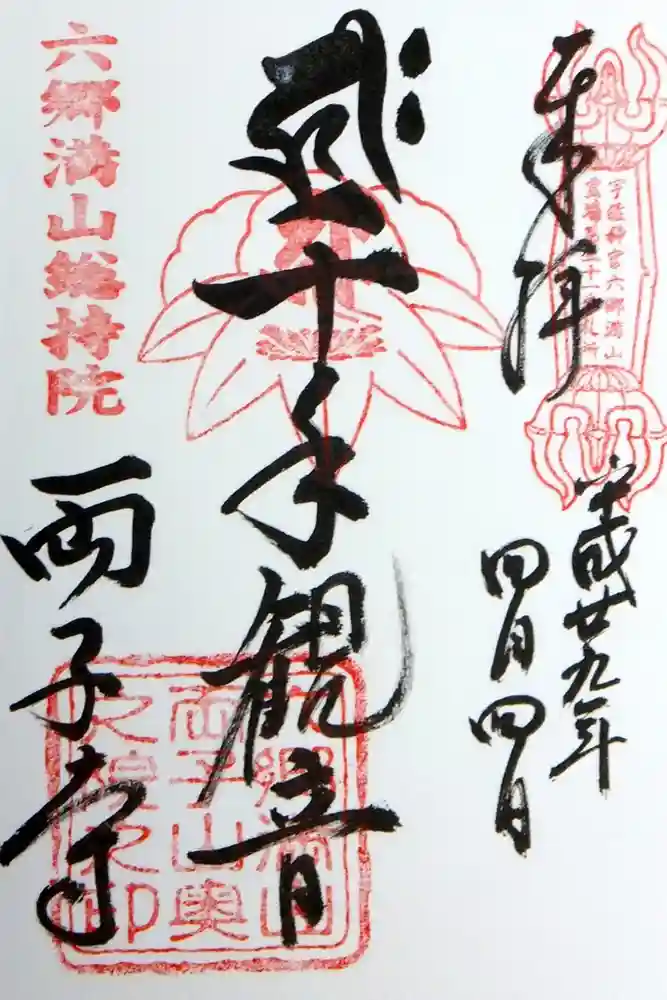 奉拝
宇佐神宮六郷満山
平成廿九年
四月四日
千手観音
六郷満山総持院
両子寺
六郷満山
両子山奥
之院之印